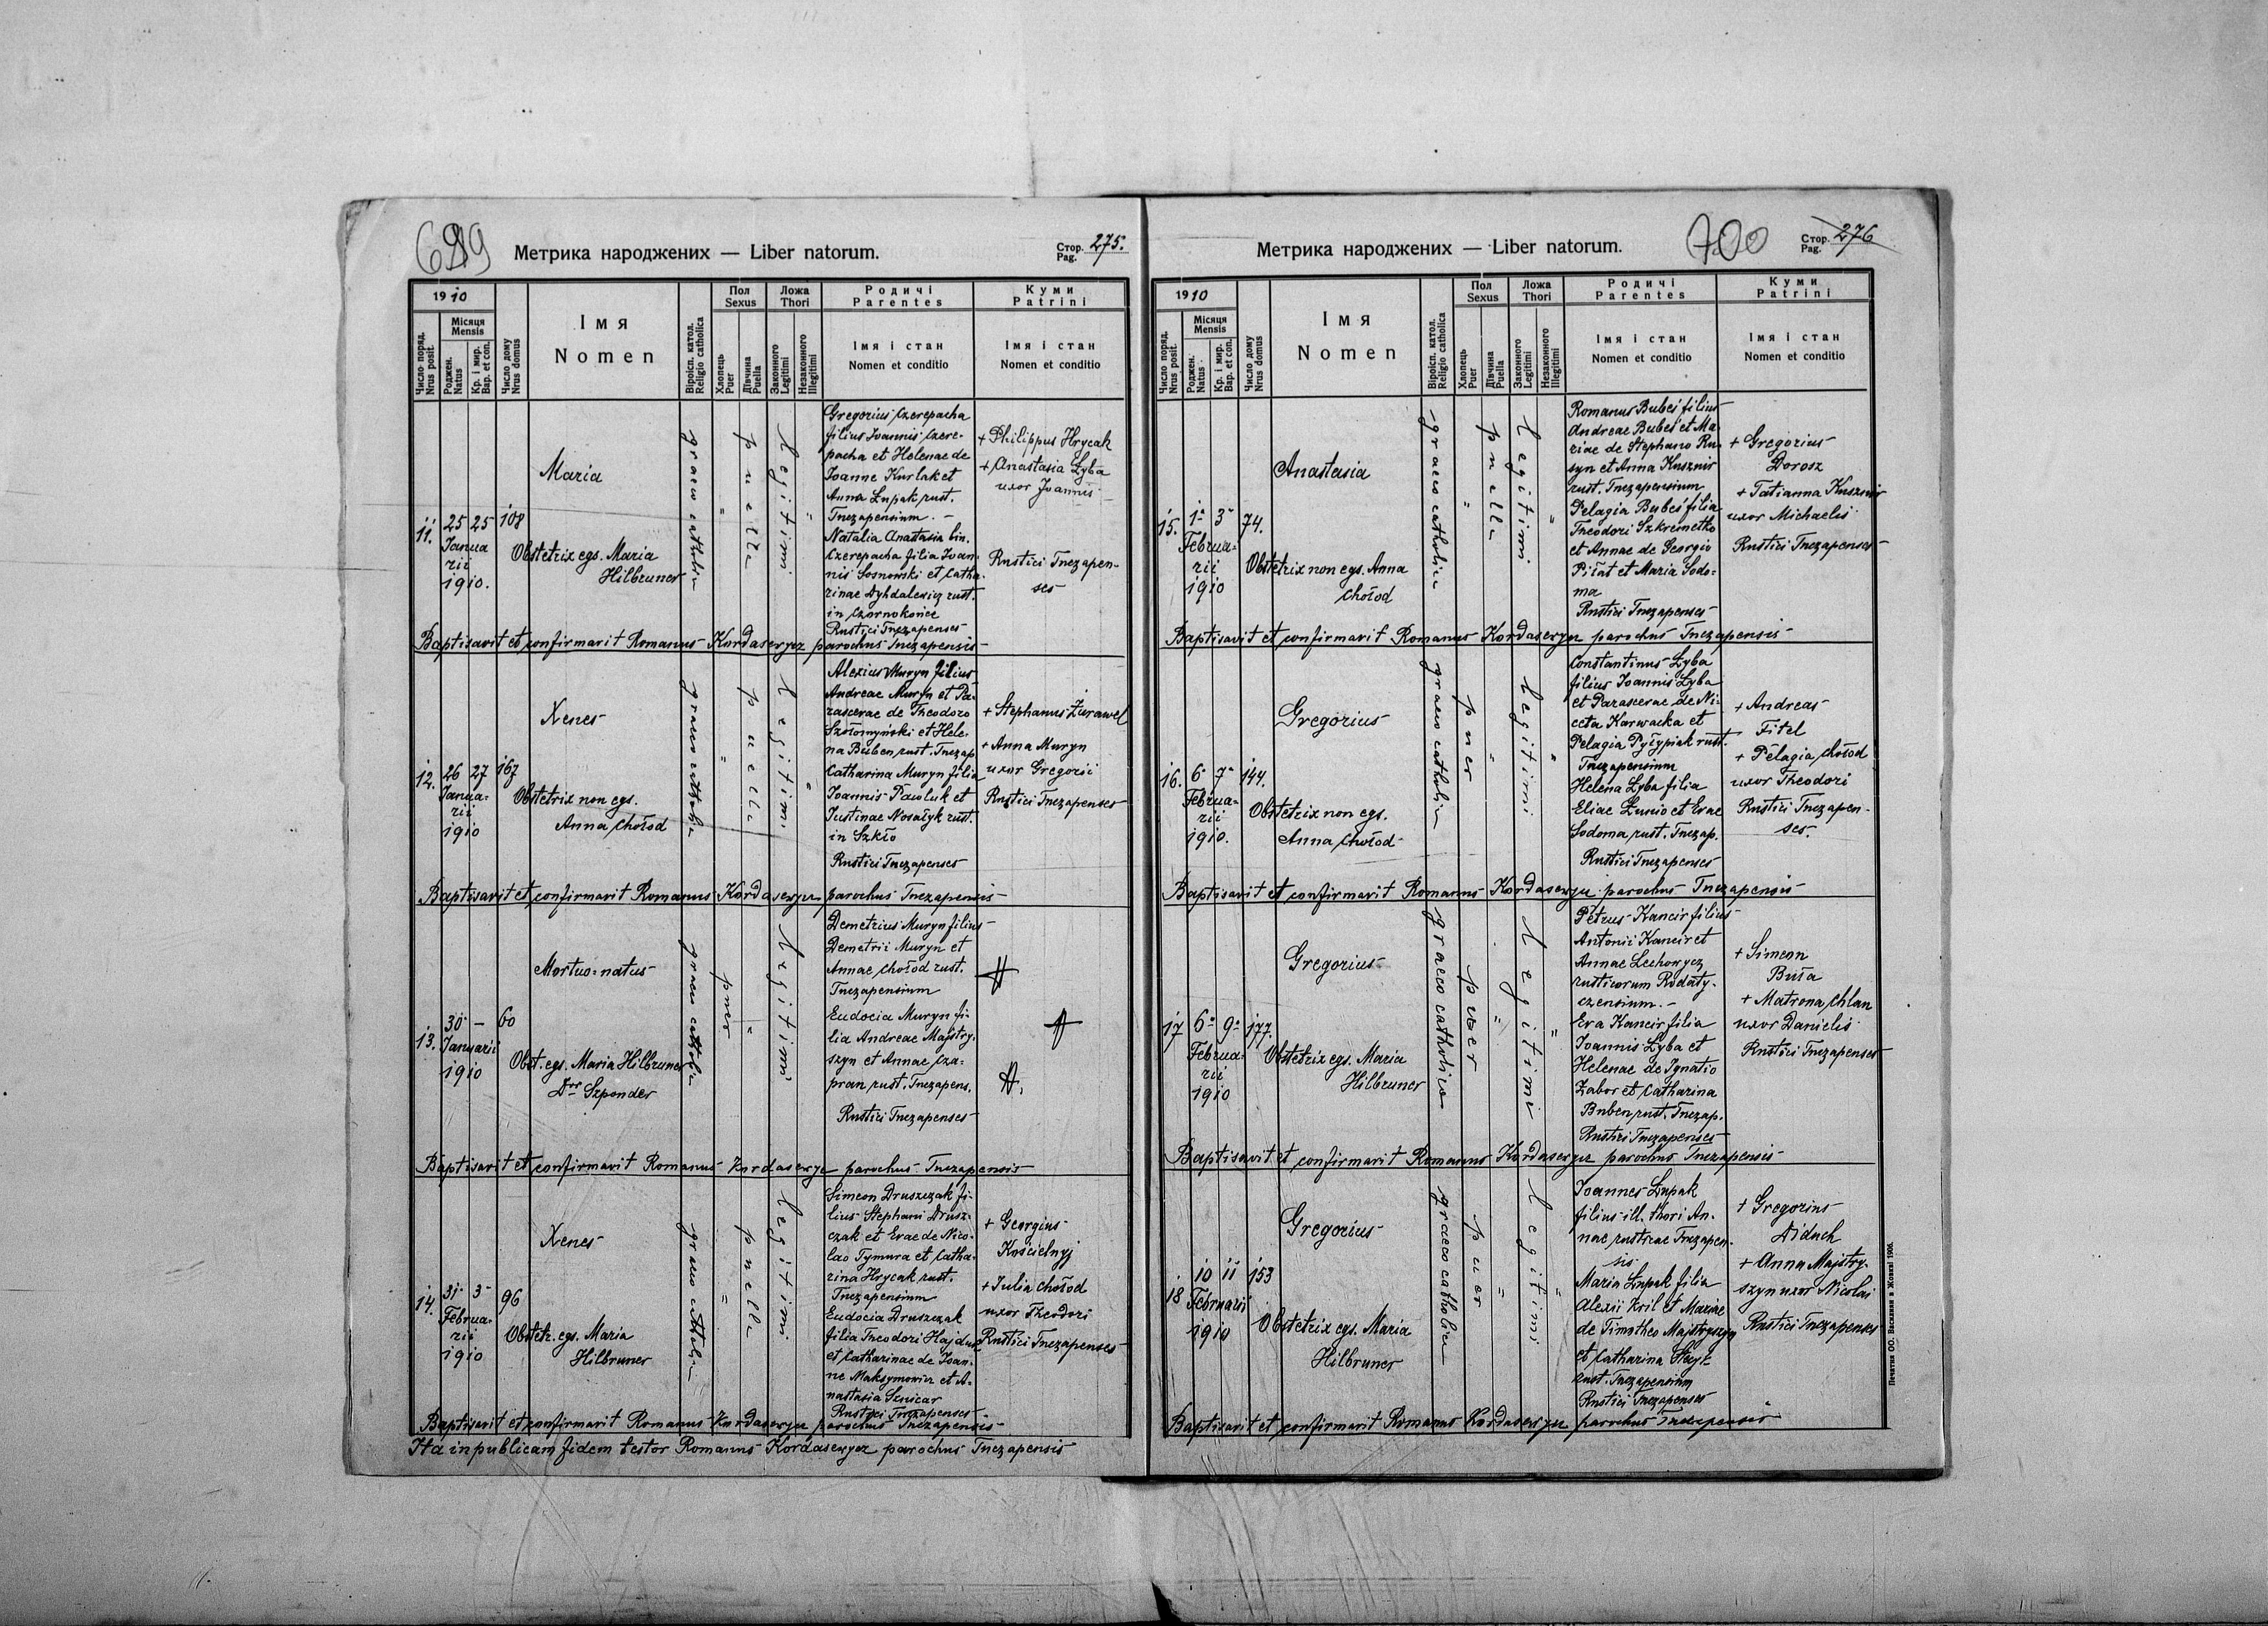 699
Метрика народжених — Liber natorum.
Стор. Pag. 275.
1910
Число поряд. Nrus posit.
Місяця Mensis
Роджен. Natus
Кр. і мир. Bap. et con.
Число дому Nrus domus
Імя
Nomen
Віроісп. катол. Religio catholica
Пол Sexus
Хлопець Puer
Дівчина Puella
Ложа Thori
Законного Legitimi
Незаконного Illegitimi
Родичі
Parentes
Імя і стан
Nomen et conditio
Куми
Patrini
Імя і стан
Nomen et conditio
11.
25 25 108
Janua
rii
1910.
Maria
Obstetrix egs. Maria
Hilbruner
graeco catholica
puella
legitimi
Gregorius Czerepacha
filius Joannis Czere-
pacha et Helenae de
Joanne Kurlak et
Anna Łupak rust.
Tnczapensium. -
Natalia Anastasia bin.
Czerepacha filia Joan-
nis Sosnowski et Catha-
rinae Dyhdalewicz rust.
in Czornokońce
Rustici Tuczapenses
+ Philippus Hrycak
+ Anastasia Zyba
uxor Joannis
Rustici Tuczapen-
ses
Baptisavit et confirmavit Romanus Kordasewycz parochus Tuczapensis
12.
26 27 167
Janua-
rii
1910
Xenes
Obstetrix non egs.
Anna Chołod
graeco catholica
puella
legitimi
Alexius Muryn filius
Andreae Muryn et Pa-
rascevae de Theodoro
Szołomyński et Hele-
na Buben, rust. Tuczap.
Catharina Muryn filia
Joannis Pawluk et
Justinae Nosatyk rust.
in Szkło
Rustici Tuczapenses
+ Stephanus Żurawel
+ Anna Muryn
uxor Gregorii
Rustici Tuczapenses
Baptisavit et confirmavit Romanus Kordasewycz parochus Tuczapensis
13.
30 - 60
Januarii
1910
Mortuo-natus
Obst. egs. Maria Hilbruner
Dr Szponder
graeco catholica
puer
legitimi
Demetrius Muryn filius
Demetrii Muryn et
Annae Chołod rust.
Tuczapensium
Eudocia Muryn fi-
lia Andreae Majstry-
szyn et Annae Cza-
pran, rust. Tuczapens.
Rustici Tuczapenses
Baptisavit et confirmavit Romanus Kordasewycz parochus Tuczapensis
14.
31 3 96
Februa-
rii
1910
Xenes
Obstetr. egs. Maria
Hilbruner
graeco catholica
puella
legitimi
Simeon Druszczak fi-
lius Stephani Drusz-
czak et Evae de Nico-
lao Tymura et Catha-
rina Hrycak rust.
Tuczapensium
Eudocia Druszczak
filia Theodori Hajduk
et Catharinae de Joan-
ne Maksymowicz et A-
nastasia
Rustici Tuczapenses
+ Georgius
Kościelnyj
+ Julia Chołod
uxor Theodori
Rustici Tuczapenses
Baptisavit et confirmavit Romanus Kordasewycz parochus Tuczapensis
Ita in publicam fidem testor Romanus Kordasewycz parochus Tuczapensis
Метрика народжених — Liber natorum.
700
Стор. Pag. 276
1910
Число поряд. Nrus posit.
Місяця Mensis
Роджен. Natus
Кр. і мир. Bap. et con.
Число дому Nrus domus
Імя
Nomen
Віроісп. катол. Religio catholica
Пол Sexus
Хлопець Puer
Дівчина Puella
Ложа Thori
Законного Legitimi
Незаконного Illegitimi
Родичі
Parentes
Імя і стан
Nomen et conditio
Куми
Patrini
Імя і стан
Nomen et conditio
15.
1 3 74.
Februa-
rii
1910
Anastasia
Obstetrix non egs. Anna
Chołod
graeco catholica
puella
legitimi
Romanus Bubeś filius
Andreae Bubeś et Ma-
riae de Stephano Ru-
syn et Anna Kusznir
rust. Tuczapensium
Pelagia Bubeś filia
Theodori Szkremetko
et Annae de Georgio
Piłat et Maria Sodo-
ma
Rustici Tuczapenses
+ Gregorius
Dorosz
+ Tatianna Kusznir
uxor Michaelis
Rustici Tuczapenses
Baptisavit et confirmavit Romanus Kordasewycz parochus Tuczapensis
16.
6 7 144.
Februa-
rii
1910.
Gregorius
Obstetrix non egs.
Anna Chołod
graeco catholica
puer
legitimi
Constantinus Zyba
filius Joannis Zyba
et Parascevae de Ni-
ceta Karwacka et
Pelagia Pyłypiak rust.
Tuczapensium
Helena Zyba filia
Eliae Łucio et Evae
Sodoma, rust. Tuczap.
Rustici Tuczapenses
+ Andreas
Fitel
+ Pelagia Chołod
uxor Theodori
Rustici Tuczapen-
ses.
Baptisavit et confirmavit Romanus Kordasewycz parochus Tuczapensis
17
6 9 177.
Februa-
rii
1910
Gregorius
Obstetrix egs. Maria
Hilbruner
graeco catholica
puer
legitimi
Petrus Kancir filius
Antonii Kancir et
Annae Lechowycz
rusticorum Rodaty-
czensium. -
Eva Kancir filia
Joannis Zyba et
Helenae de Ignatio
Zabor et Catharina
Buben, rust. Tuczap.
Rustici Tuczapenses
+ Simeon
Buła
+ Matrona Chlan
uxor Danielis
Rustici Tuczapenses
Baptisavit et confirmavit Romanus Kordasewycz parochus Tuczapensis
18
10 11 153
Februarii
1910
Gregorius
Obstetrix egs. Maria
Hilbruner
graeco catholica
puer
legitimi
Joannes Łupak
filius ill. thori An-
nae rusticae Tuczapen-
sis
Maria Łupak filia
Alexii Kril et Mariae
de Timotheo Majstryszyn
et Catharina
rust. Tuczapensium
Rustici Tuczapenses
+ Gregorius
Diduch
+ Anna Majstry-
szyn uxor Nicolai
Rustici Tuczapenses
Baptisavit et confirmavit Romanus Kordasewycz parochus Tuczapensis
Печатня ОО. Василиян в Жовкві 1906.